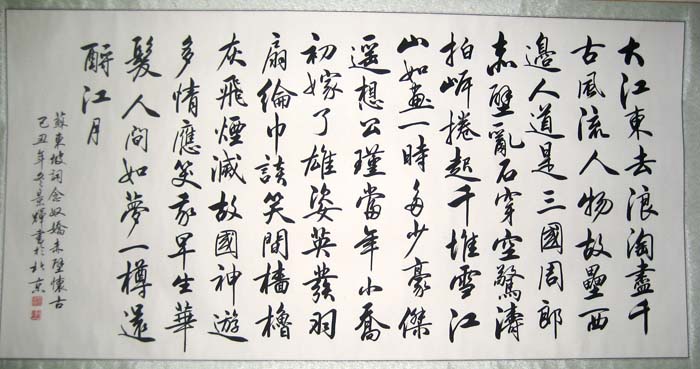 大江東去浪淘盡千
古風流人物故壘西
邊人道是三國周郎
赤壁亂石穿空驚濤
拍岸捲起千堆雪江
山如畫一時多少豪傑
遥想公瑾當年小喬
初嫁了雄姿英發羽
扇綸巾談笑間檣櫓
灰飛煙滅故國神遊
多情應笑我早生華
髮人間如夢一樽還
酹江月
蘇東坡詞念奴嬌赤壁懷古
己丑年冬景輝書於北京